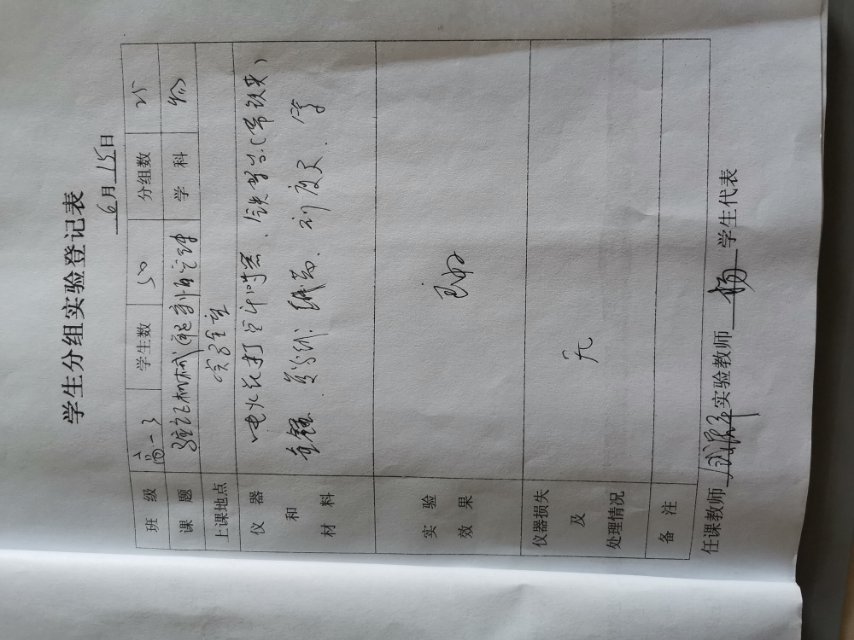 学生分组实验登记表
6月15日
班级 高一3 学生数 50 分组数 25
课题 验证机械能守恒定律 学科 物
上课地点 实验室
仪器和材料 电火花打点计时器、铁架台(带铁夹)、
重锤、复写纸、纸带、刻度尺、学
实验效果
仪器损失及处理情况 无
备注
任课教师 实验教师 杨 学生代表